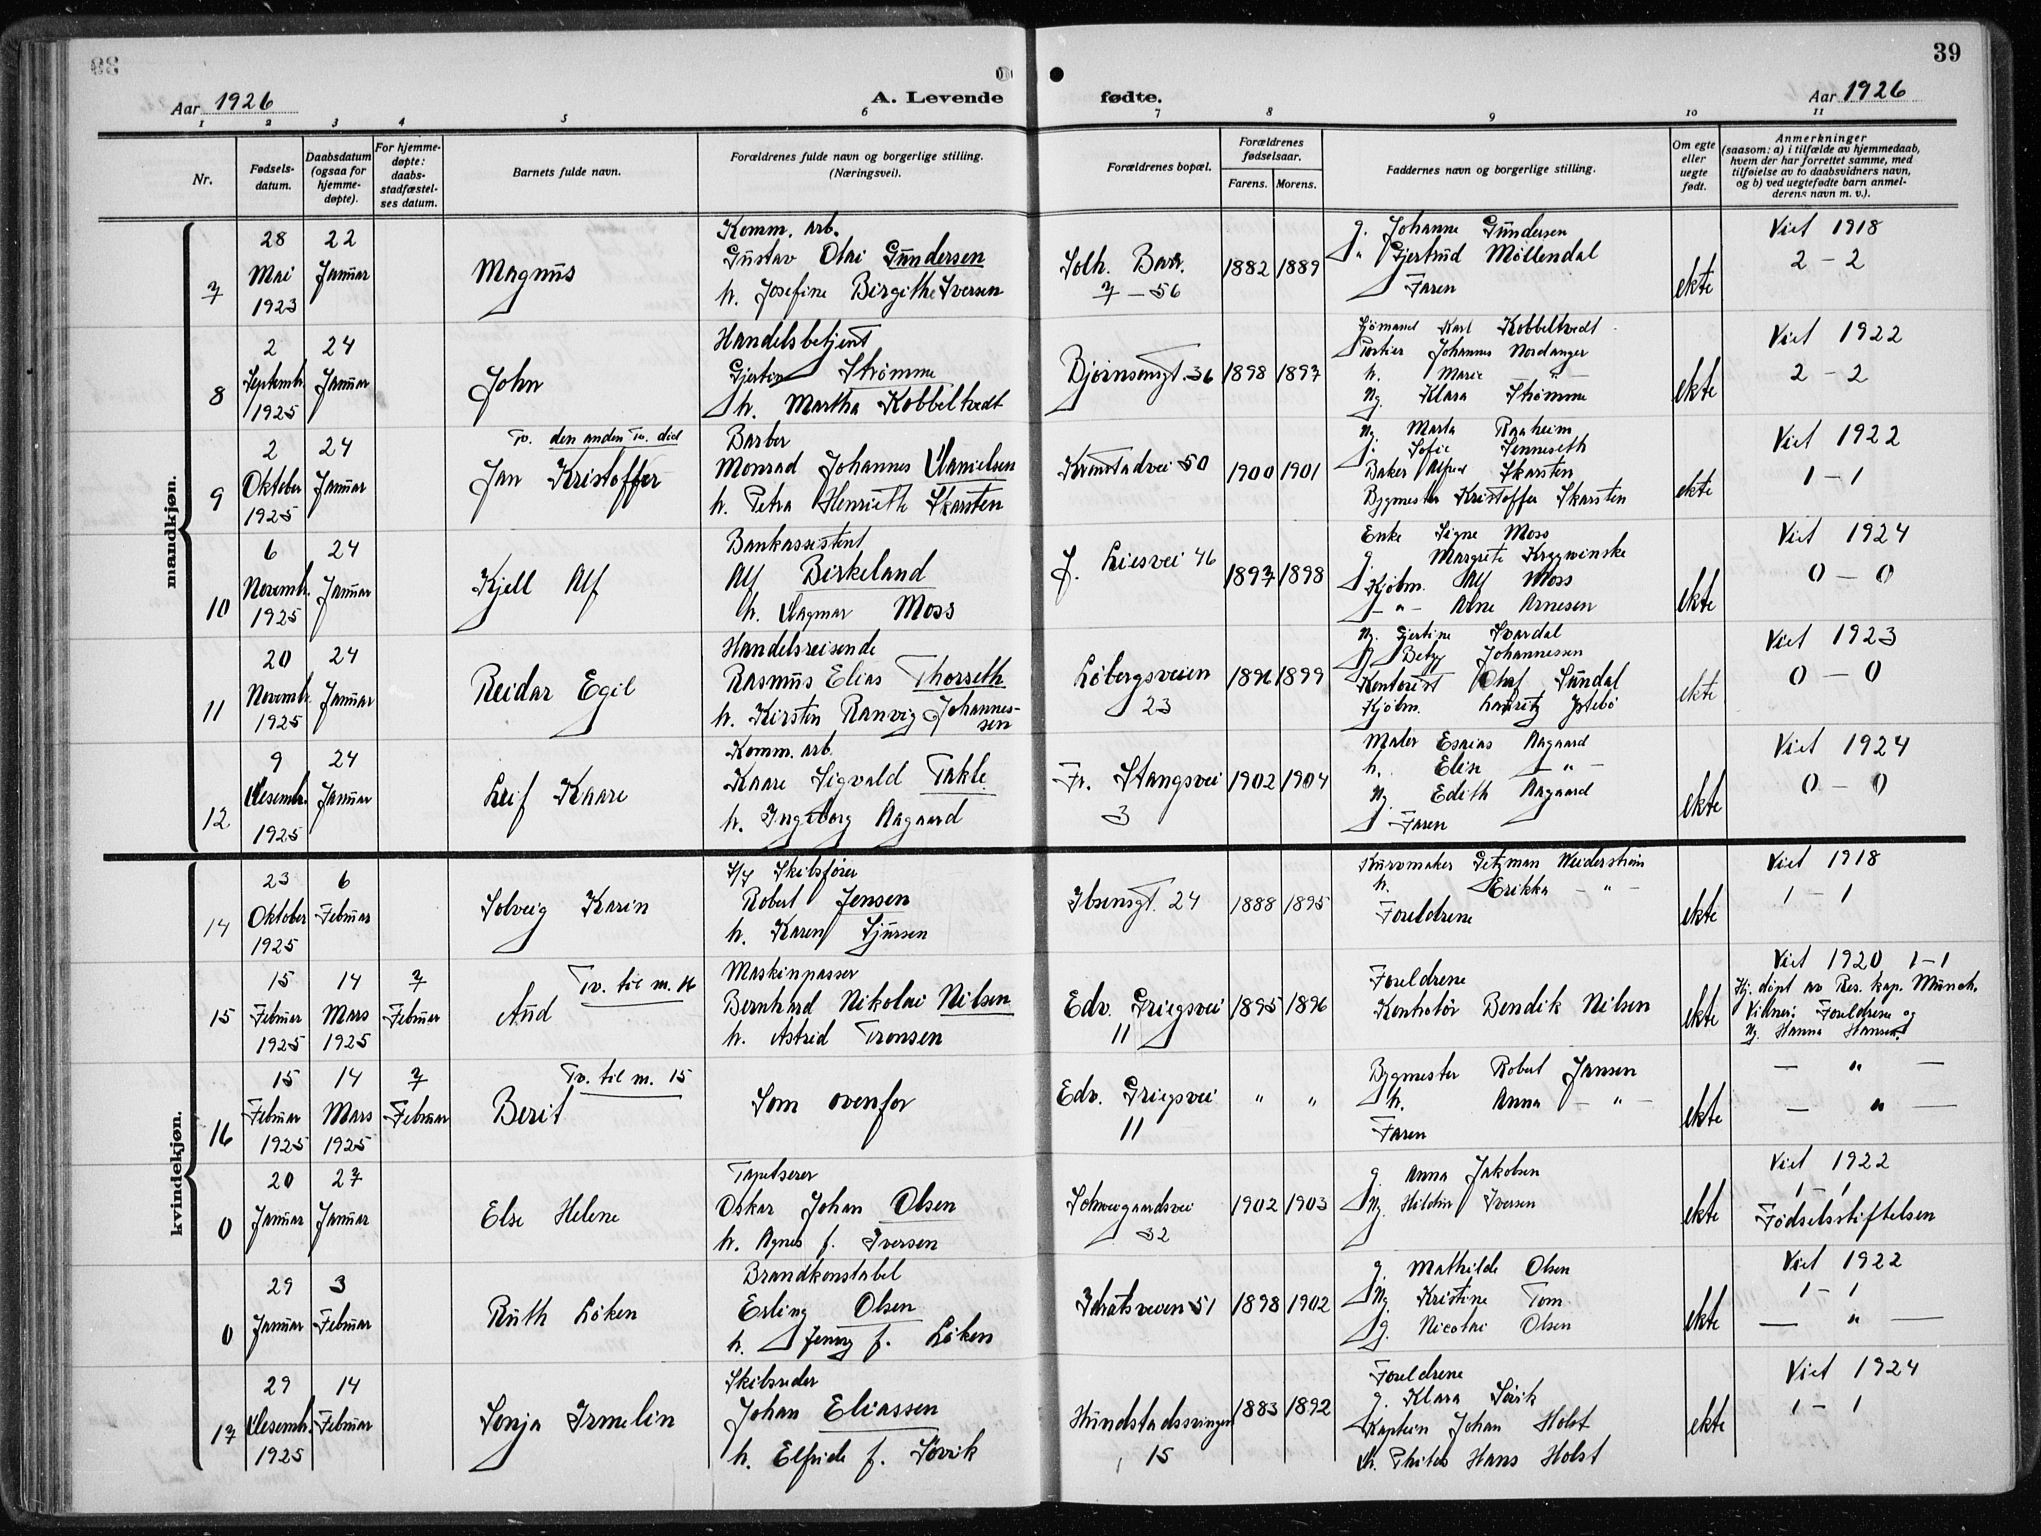 39
Aar 1926
A. Levende fødte.
Aar 1926
1 2 3 4 5 6 7 8 9 10 11
Nr.
Fødsels-
datum.
Daabsdatum
(ogsaa for
hjemme-
døpte).
For hjemme-
døpte:
daabs-
stadfæstel-
ses datum.
Barnets fulde navn.
Forældrenes fulde navn og borgerlige stilling.
(Næringsvei).
Forældrenes bopæl.
Forældrenes
fødselsaar.
Farens. Morens.
Faddernes navn og borgerlige stilling.
Om egte
eller
uegte
født.
Anmerkninger
(saasom: a) i tilfælde av hjemmedaab,
hvem der har forrettet samme, med
tilføielse av to daabsvidners navn,
og b) ved uegtefødte barn anmel-
derens navn m. v.).
mandkjøn.
7
28
Mai
1923
22
Januar
Magnus
Komm. arb.
Gustav Olai Gundersen
h. Josefine Birgithe Iversen
Solh. Barr.
7 - 56
1882 1889
g. Johanne Gundersen
" Gjertrud Møllendal
Faren
ekte
Viet 1918
2 - 2
8
2
Septembr.
1925
24
Januar
John
Handelsbetjent
Gjertin Strømme
h. Martha Kobbeltvedt
Bjørnsonsgt. 36
1898 1897
Sjømand Karl Kobbeltvedt
Portier Johannes Nordanger
h. Marie - " -
Ug. Klara Strømme
ekte
Viet 1922
2 - 2
9
2
Oktober
1925
24
Januar
Tv. den anden Tv. død
Jan Kristoffer
Barber
Monrad Johannes Danielsen
h. Petra Henriette Skarsten
Kronstadvei 50
1900 1901
Ug. Marta Raaheim
g. Sofie Senneseth
Baker Alfred Skarsten
Bygmester Kristoffer Skarsten
ekte
Viet 1922
1 - 1
10
6
Novembr.
1925
24
Januar
Kjell Alf
Bankassistent
Alf Birkeland
h. Dagmar Moss
J. Liesvei 46
1897 1898
Enke Signe Moss
g. Margrete
Kjøbm. Alf Moss
- " - Arne Arnesen
ekte
Viet 1924
0 - 0
11
20
Novembr.
1925
24
Januar
Reidar Egil
Handelsreisende
Rasmus Elias Thorseth
h. Kirsten Ranvig Johannes-
sen
Løbergsveien
23
1896 1899
Ug. Gjertine Svardal
g. Betzy Johannessen
Kontorist Olaf Sundal
Kjøbm. Lauritz Ystebø
ekte
Viet 1923
0 - 0
12
9
Desembr.
1925
24
Januar
Leif Kaare
Komm. arb.
Kaare Sigvald Takle
h. Ingeborg Aagaard
Fr. Stangsvei
3
1902 1904
Maler Esaias Aagaard
h. Elin - " -
Ug. Edith Aagaard
Faren
ekte
Viet 1924
0 - 0
kvindekjøn.
14
23
Oktober
1925
6
Februar
Solveig Karin
F/f Skibsfører
Robert Jensen
h. Karen Sjursen
Ibsensgt. 24
1888 1895
Kurvmaker Getzman Weiderstrøm
h. Erikka - " -
Foreldrene
ekte
Viet 1918
1 - 1
15
15
Februar
1925
14
Mars
1925
7
Februar
Tv. til m. 16
Aud
Maskinpasser
Bernhard Nikolai Nilsen
h. Astrid Tronsen
Edv. Griegsvei
11
1895 1896
Foreldrene
Kontrolør Bendik Nilsen
ekte
Viet 1920 1 - 1
Hj. døpt av Res. kap. Münch.
Vidner: Foreldrene og
Ug. Hanna Hansen.
16
15
Februar
1925
14
Mars
1925
7
Februar
Tv. til m. 15
Berit
Som ovenfor
Edv. Griegsvei
11
" "
Bygmester Robert Jansen
h. Anna - " -
Faren
ekte
- " -
- " -
0
20
Januar
27
Januar
Else Helene
Tapetserer
Oskar Johan Olsen
h. Agnes f. Iversen
Schweigaardsvei
32
1902 1903
g. Anna Jakobsen
Ug. Hildur Iversen
ekte
Viet 1922
1 - 1
Fødselsstiftelsen
0
29
Januar
3
Februar
Ruth Løken
Brandkonstabel
Erling Olsen
h. Jenny f. Løken
Idrætsveien 51
1898 1902
g. Mathilde Olsen
Ug. Kristine Tom
g. Nicolai Olsen
ekte
Viet 1922
1 - 1
- " -
17
29
Desembr.
1925
14
Februar
Sonja Irmelin
Skibsreder
Johan Eliassen
h. Elfride f. Søvik
Hundstadssvingen
15
1883 1892
Foreldrene
g. Klara Søvik
Kaptein Johan Holst
Hans Holst
ekte
Viet 1924
1 - 1